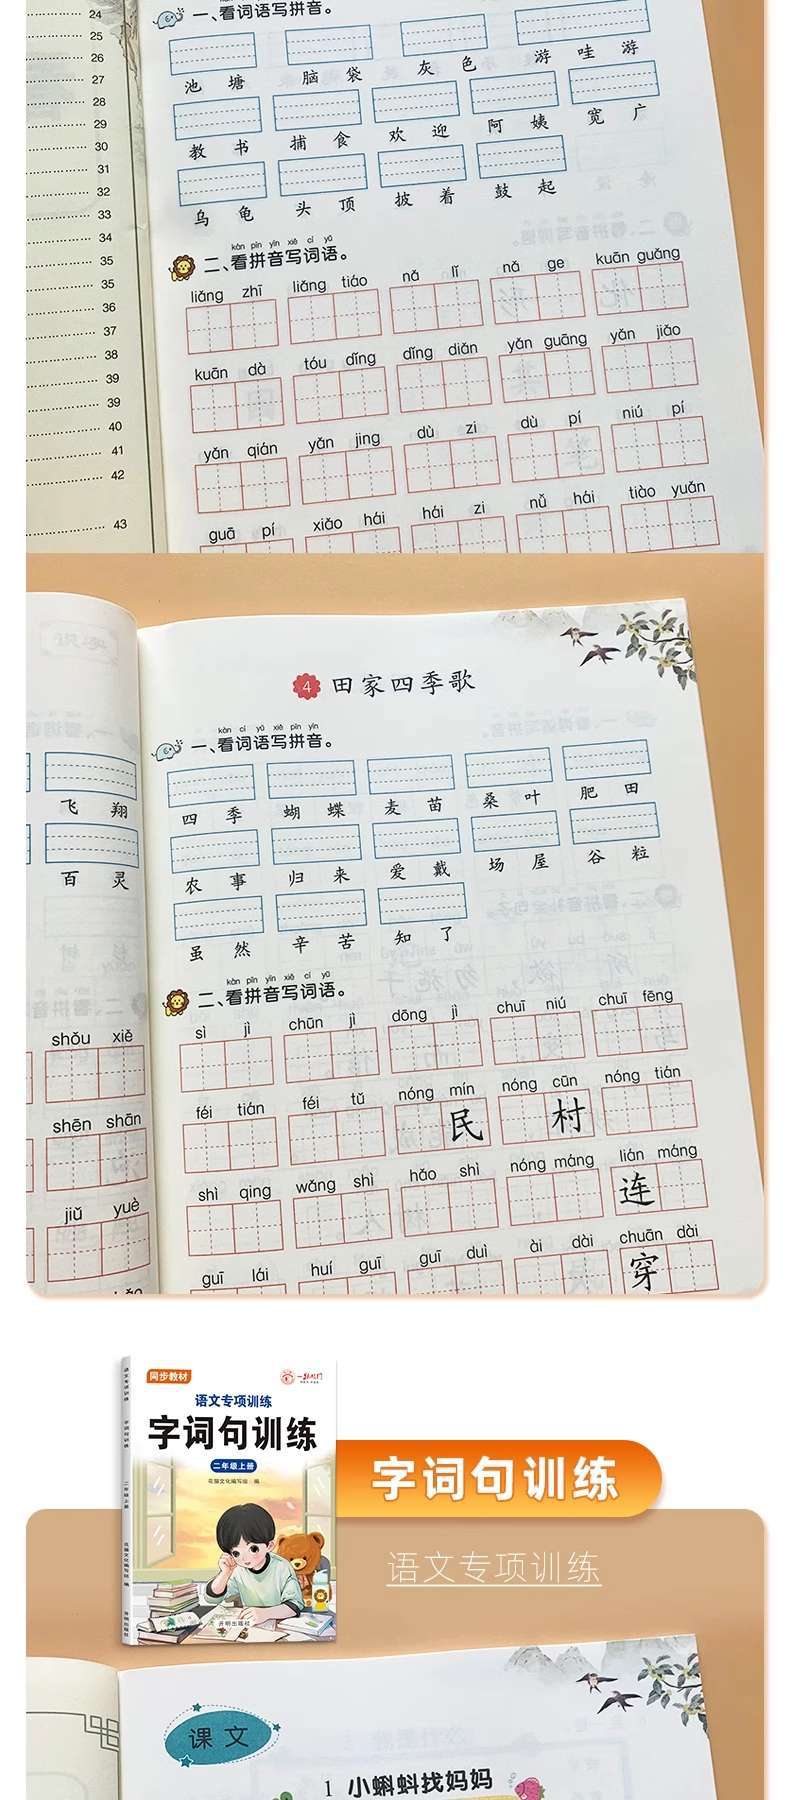 24
25
26
27
28
29
30
31
32
33
34
35
35
36
37
38
39
39
40
41
42
43
一、看词语写拼音。
池塘 脑袋 灰色 游哇游
教书 捕食 欢迎 阿姨 宽广
乌龟 头顶 披着 鼓起
kàn pīn yīn xiě cí yǔ
二、看拼音写词语。
liǎng zhī liǎng tiáo nǎ lǐ nǎ ge kuān guǎng
kuān dà tóu dǐng dǐng diǎn yǎn guāng yǎn jiǎo
yǎn qián yǎn jing dù zi dù pí niú pí
guā pí xiǎo hái hái zi nǚ hái tiào yuǎn
4 田家四季歌
kàn cí yǔ xiě pīn yīn
一、看词语写拼音。
四季 蝴蝶 麦苗 桑叶 肥田
农事 归来 爱戴 场屋 谷粒
虽然 辛苦 知了
kàn pīn yīn xiě cí yǔ
二、看拼音写词语。
sì jì chūn jì dōng jì chuī niú chuī fēng
féi tián féi tǔ nóng mín nóng cūn nóng tián
民 村
shì qing wǎng shì hǎo shì nóng máng lián máng
连
guī lái huí guī guī duì ài dài chuān dài
穿
飞翔
百灵
shǒu xiě
shēn shān
jiǔ yuè
同步教材
语文专项训练
字词句训练
二年级上册
花猫文化编写组 编
开明出版社
语文专项训练
字词句训练
二年级上册
开明出版社
字词句训练
语文专项训练
课文
1 小蝌蚪找妈妈